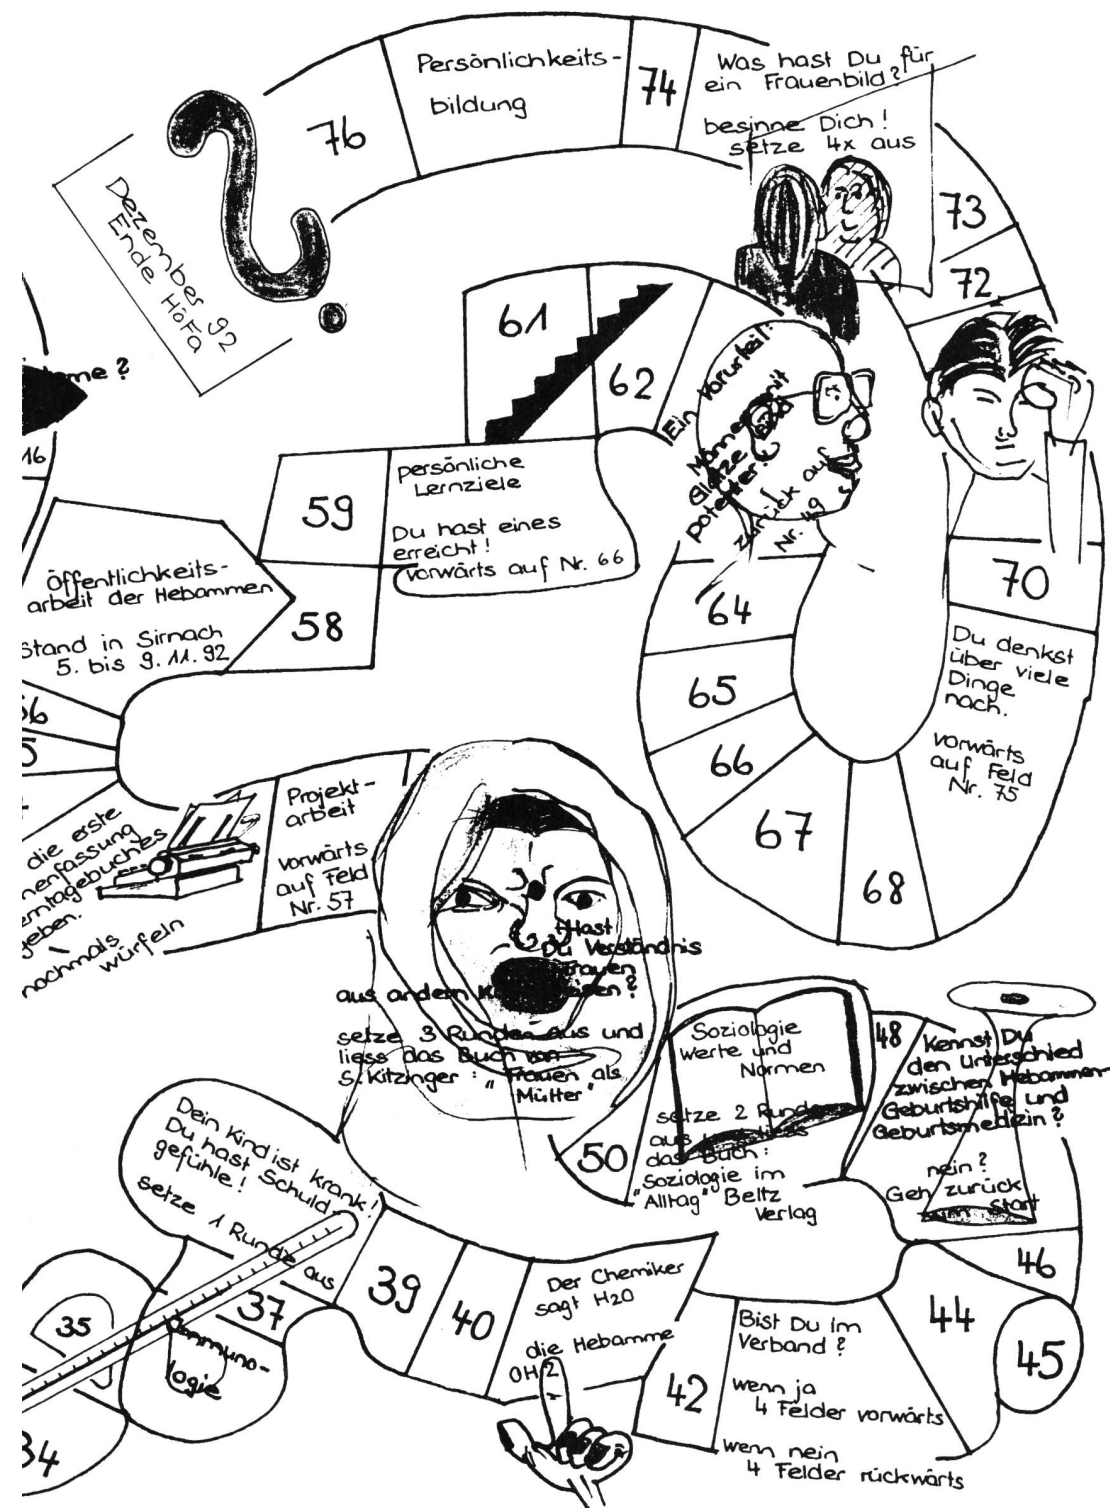 Persönlichkeits-
bildung
74
Was hast Du für
ein Frauenbild?
besinne Dich!
setze 4x aus
76
73
72
Dezember 92
Ende HöFa
61
62
Ein Vorurteil:
Männer mit
Glatze sind
potenter!
zurück auf
Nr. 49
me?
16
59
persönliche
Lernziele
Du hast eines
erreicht!
vorwärts auf Nr. 66
58
Öffentlichkeits-
arbeit der Hebammen
Stand in Sirnach
5. bis 9.11.92
70
Du denkst
über viele
Dinge
nach.
vorwärts
auf Feld
Nr. 75
64
65
66
67
68
6
5
die erste
enfassung
erntagebuches
geben.
nochmals
würfeln
Projekt-
arbeit
vorwärts
auf Feld
Nr. 57
Hast
Du Verständnis
Frauen
aus andern
setze 3 Runden aus und
liess das Buch von
S. Kitzinger: "Frauen als
Mütter"
50
Soziologie
Werte und
Normen
setze 2 Runden
aus
das Buch:
"Soziologie im
Alltag" Beltz
Verlag
48
Kennst Du
den Unterschied
zwischen Hebammen-
Geburtshilfe und
Geburtsmedizin?
nein?
Geh zurück
zum Start
46
45
44
Bist Du im
Verband?
wenn ja
4 Felder vorwärts
wenn nein
4 Felder rückwärts
42
Der Chemiker
sagt H2O
die Hebamme
OH2
40
39
Dein Kind ist krank!
Du hast Schuld-
gefühle!
setze 1 Runde aus
37
35
logie
34